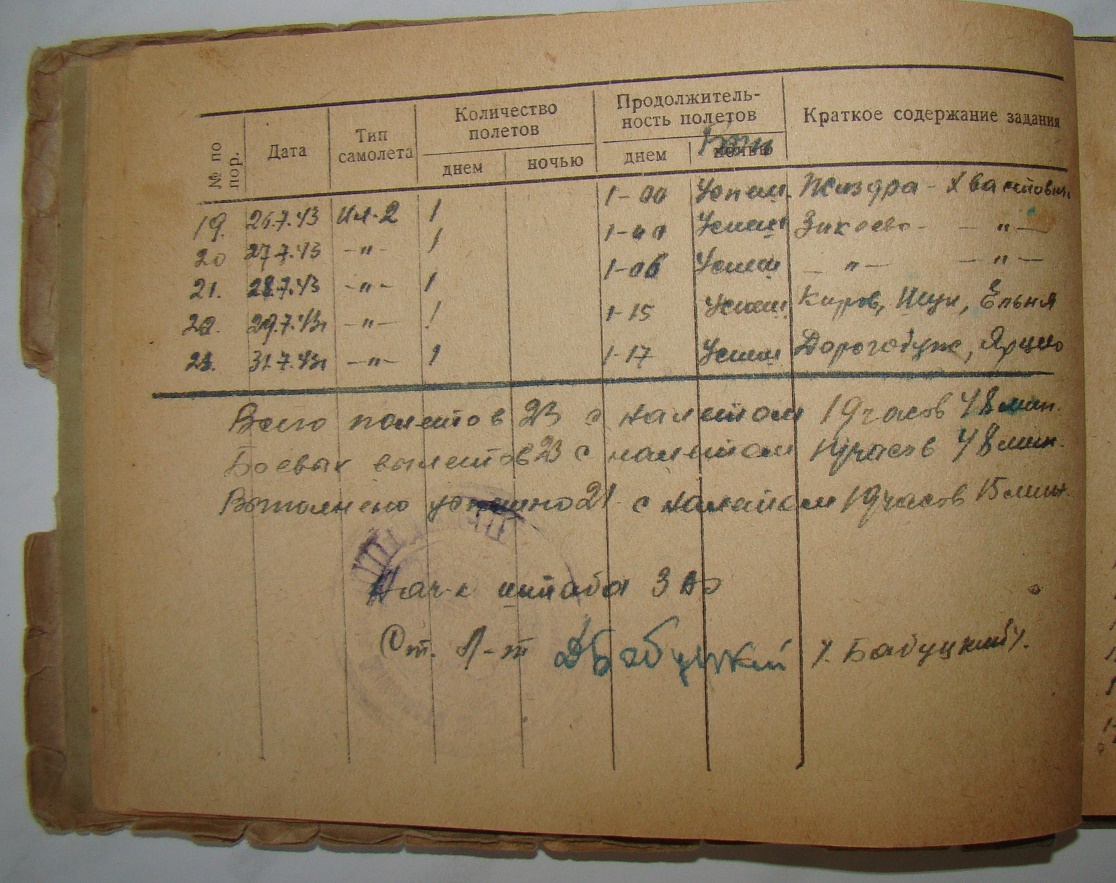 № по пор. Дата Тип самолета Количество полетов Продолжитель- ность полетов Краткое содержание задания
днем ночью днем ночью
19. 26.7.43 Ил-2 1 1-00 Успеш. Жиздра - Хвастовичи
20 27.7.43 -"- 1 Успеш Зикеево - -"-
21. 28.7.43 -"- 1 1-06 Успеш -"- -"-
22. 29.7.43г -"- 1 1-15 Успеш. Киров, Ельня
23. 31.7.43г -"- 1 1-17 Успеш Дорогобуж, Ярцево
Всего полетов 23 с налетом 19 часов 48 мин.
Боевых вылетов 23 с налетом 19 часов 48 мин.
Выполнено успешно 21 с налетом 19 часов 15 мин.
Нач-к штаба 3 Аэ
Ст. л-т ДБабуцкий /. Бабуцкий /.